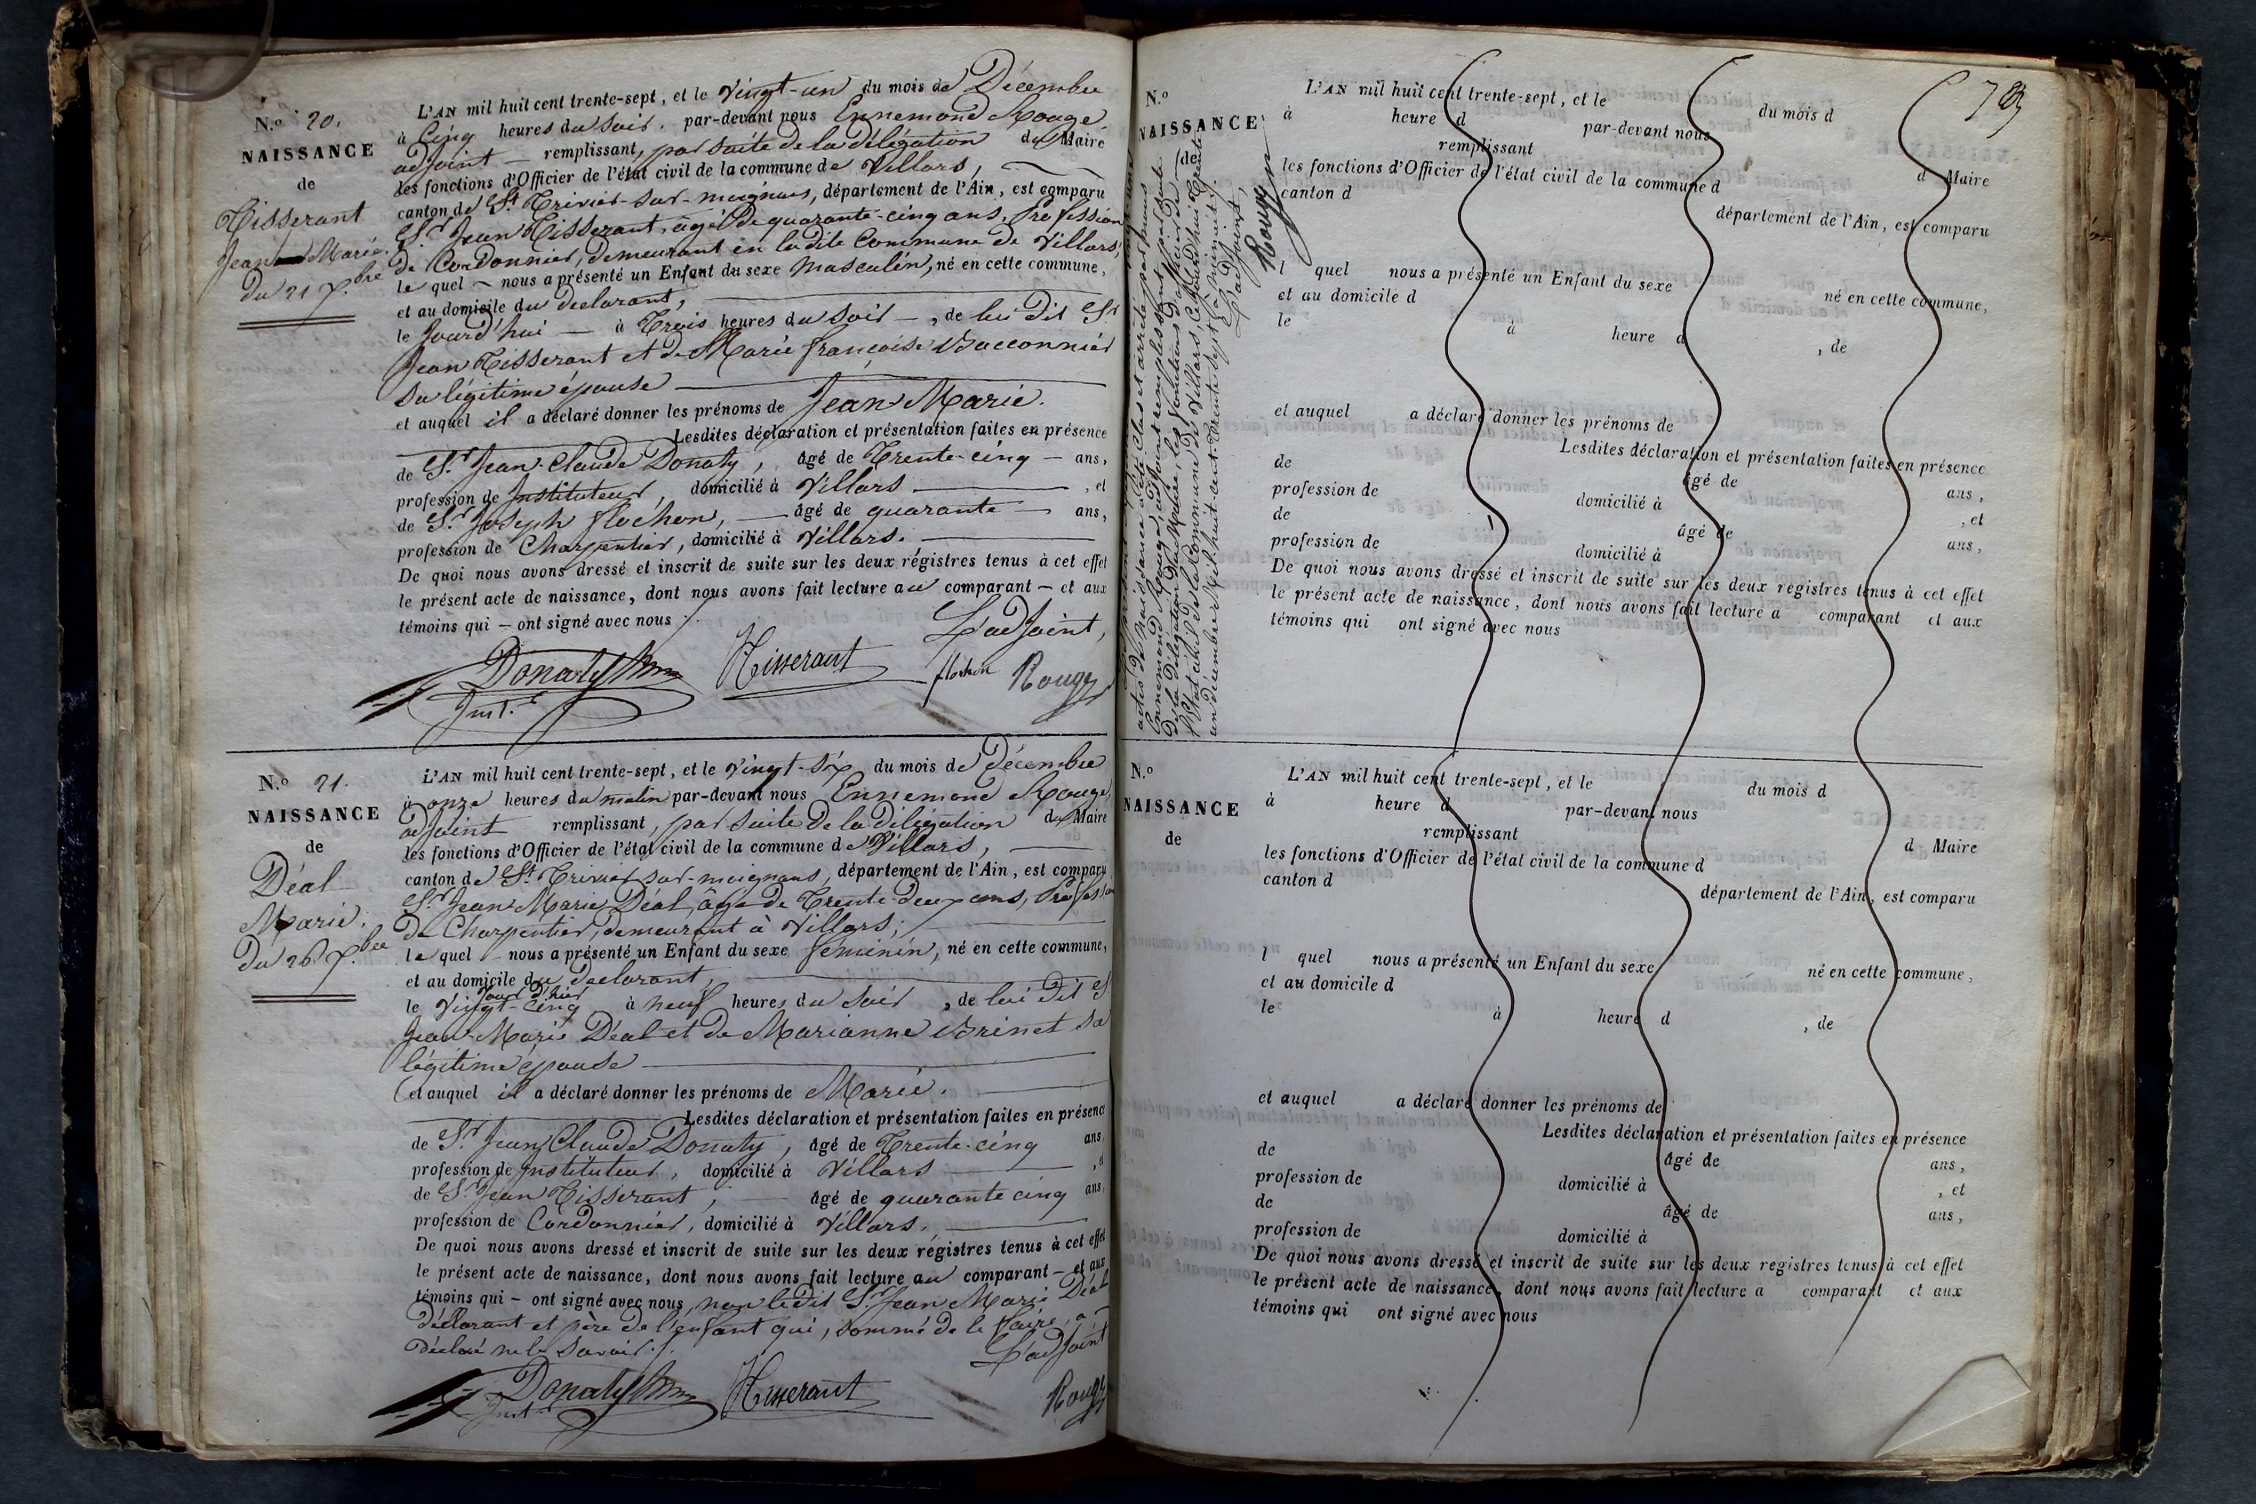 N.º 20.
NAISSANCE
de
Tisserant
Jean Marie.
Du 21 Xbre
L'AN mil huit cent trente-sept, et le vingt-un du mois de Décembre
à Cinq heures du soir. par-devant nous Ennemond Rougé
adjoint — remplissant, par suite de la délégation du Maire
les fonctions d'Officier de l'état civil de la commune de Villars,
canton de St. Trivier-sur-moignans, département de l'Ain, est comparu
Sr. Jean Tisserant, âgé de quarante-cinq ans, Profession
de Cordonnier, demeurant en la dite Commune de Villars,
le quel — nous a présenté un Enfant du sexe masculin, né en cette commune,
et au domicile du déclarant,
le jourd'hui — à Trois heures du soir —, de lui dit Sr.
Jean Tisserant et de Marie françoise Bacconnier
sa légitime épouse
et auquel il a déclaré donner les prénoms de Jean Marie.
Lesdites déclaration et présentation faites en présence
de Sr. Jean-Claude Donaty, âgé de Trente-cinq — ans,
profession de Instituteur, domicilié à Villars —, et
de Sr. Joseph flochon, — âgé de quarante — ans,
profession de Charpentier, domicilié à Villars.
De quoi nous avons dressé et inscrit de suite sur les deux régistres tenus à cet effet
le présent acte de naissance, dont nous avons fait lecture au comparant — et aux
témoins qui — ont signé avec nous
L'adjoint,
Donaty
Inst.r
Tisserant
flochon
Rougé
N.º 21.
NAISSANCE
de
Déal
Marie.
Du 26 Xbre
L'AN mil huit cent trente-sept, et le vingt-six du mois de Décembre
à onze heures du matin par-devant nous Ennemond Rougé,
adjoint remplissant, par suite de la délégation du Maire
les fonctions d'Officier de l'état civil de la commune de Villars,
canton de St. Trivier-sur-moignans, département de l'Ain, est comparu
Sr. Jean Marie Déal, âgé de Trente-deux ans, Profession
de Charpentier, demeurant à Villars,
le quel nous a présenté un Enfant du sexe féminin, né en cette commune,
et au domicile du déclarant,
jour d'hier
le vingt-cinq à neuf heures du soir, de lui dit Sr
Jean-Marie Déal et de Marianne Brinet sa
légitime épouse
et auquel il a déclaré donner les prénoms de Marie.
Lesdites déclaration et présentation faites en présence
de Sr. Jean Claude Donaty, âgé de Trente-cinq ans,
profession de Instituteur, domicilié à Villars
de Sr. Jean Tisserant, — âgé de quarante cinq ans,
profession de Cordonnier, domicilié à Villars.
De quoi nous avons dressé et inscrit de suite sur les deux régistres tenus à cet effet
le présent acte de naissance, dont nous avons fait lecture au comparant — et aux
témoins qui — ont signé avec nous, non ledit Sr. Jean Marie Déal
déclarant et père de l'enfant qui, sommé de le faire, a
déclaré ne le savoir.
L'adjoint
Donaty
Inst.
Tisserant
Rougé
N.º
NAISSANCE
de
actes de naissance a été clos et arrêté par nous
Ennemond Rougé, adjoint remplissant, par suite
de la délégation du Maire, les fonctions d'officier de
l'état civil de la Commune de Villars, Cejourd'hui Trente
un décembre mil huit cent Trente-sept
L'adjoint,
Rougé
L'AN mil huit cent trente-sept, et le du mois d
à heure d par-devant nous
remplissant d Maire
les fonctions d'Officier de l'état civil de la commune d
canton d département de l'Ain, est comparu
l quel nous a présenté un Enfant du sexe né en cette commune,
et au domicile d
le à heure d , de
et auquel a déclaré donner les prénoms de
Lesdites déclaration et présentation faites en présence
de âgé de ans,
profession de domicilié à , et
de âgé de ans,
profession de domicilié à
De quoi nous avons dressé et inscrit de suite sur les deux registres tenus à cet effet
le présent acte de naissance, dont nous avons fait lecture a comparant et aux
témoins qui ont signé avec nous
N.º
NAISSANCE
de
L'AN mil huit cent trente-sept, et le du mois d
à heure d par-devant nous
remplissant d Maire
les fonctions d'Officier de l'état civil de la commune d
canton d département de l'Ain, est comparu
l quel nous a présenté un Enfant du sexe né en cette commune,
et au domicile d
le à heure d , de
et auquel a déclaré donner les prénoms de
Lesdites déclaration et présentation faites en présence
de âgé de ans,
profession de domicilié à , et
de âgé de ans,
profession de domicilié à
De quoi nous avons dressé et inscrit de suite sur les deux registres tenus à cet effet
le présent acte de naissance, dont nous avons fait lecture a comparant et aux
témoins qui ont signé avec nous